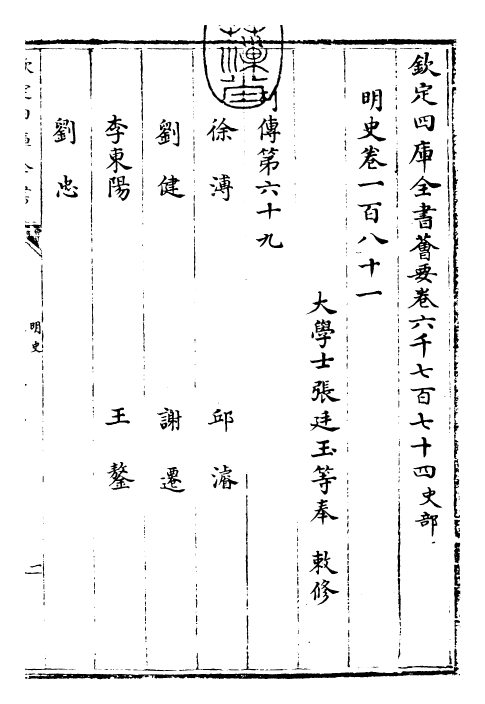 欽定四庫全書薈要卷六千七百七十四史部
明史卷一百八十一
大學士張廷玉等奉 敕修
列傳第六十九
徐溥 邱濬
劉健 謝遷
李東陽 王鏊
劉忠
明史